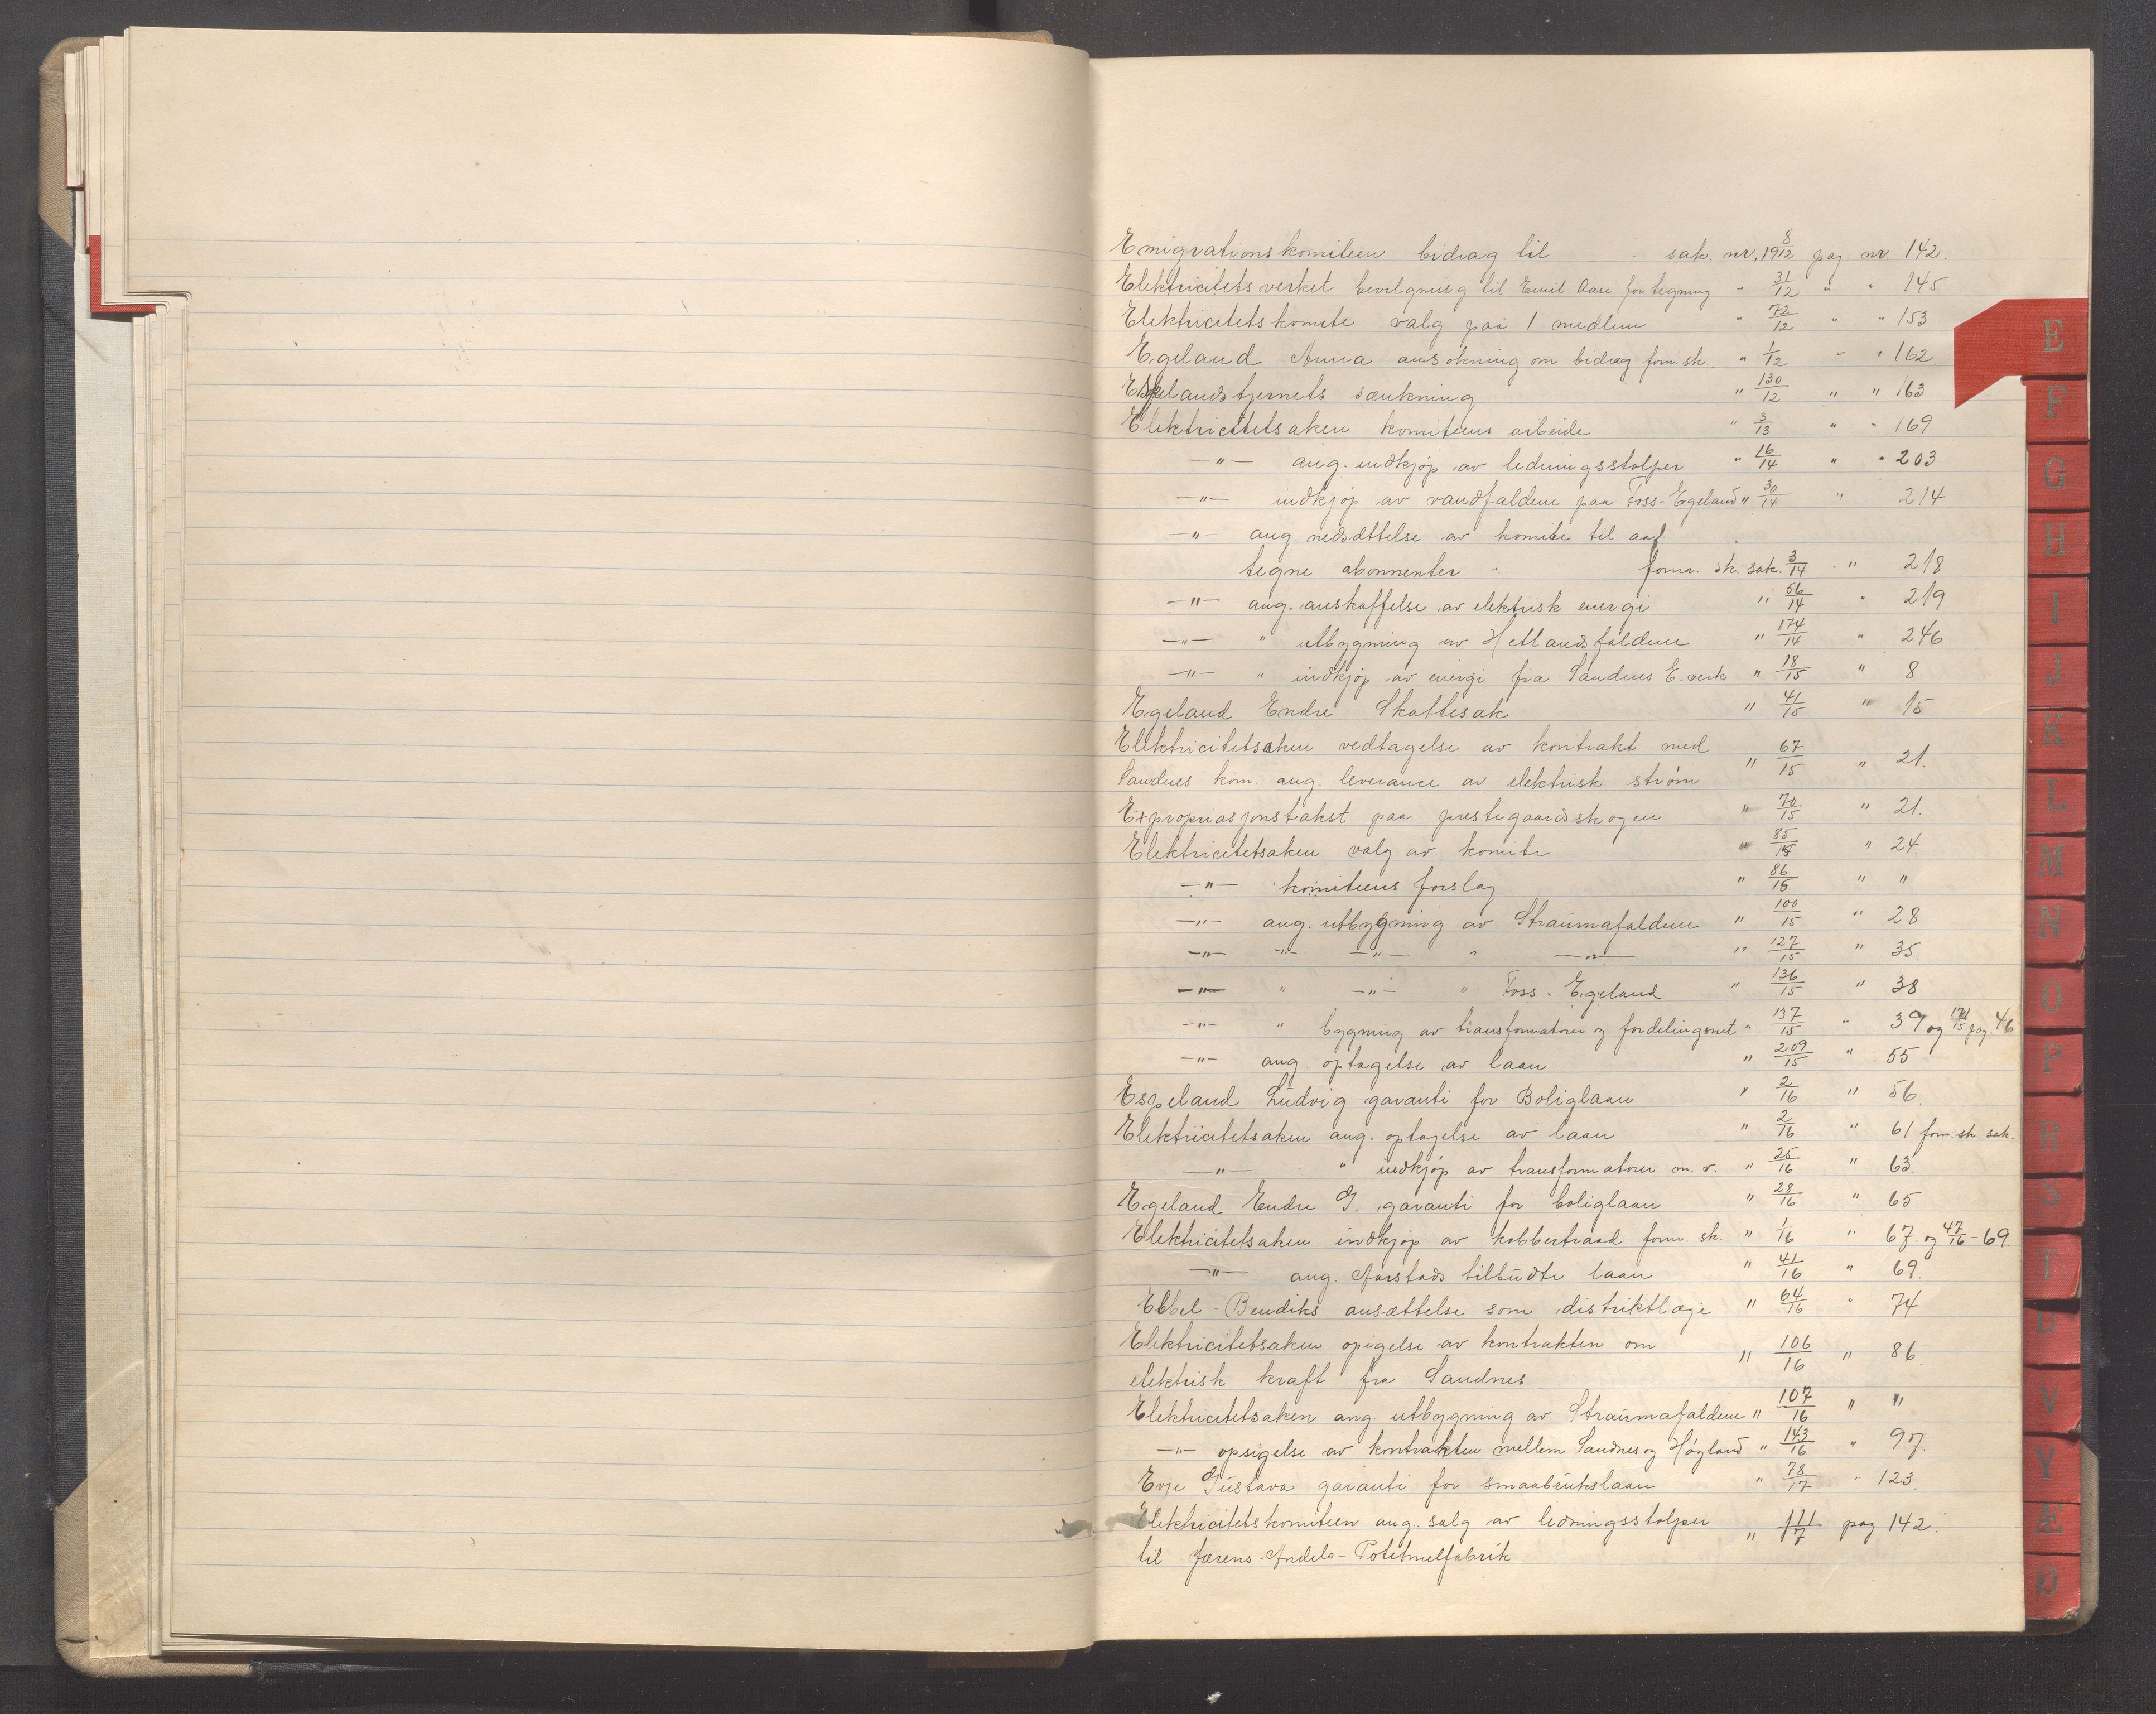 Emigrationskomiteen bidrag til sak. nr. 8/1912 pag. nr 142.
Elektricitetsverket bevilgning til Emil Aase for tegning " 31/12 " " 145
Elektricitetskomite valg paa 1 medlem " 72/12 " " 153
Egeland Anna ansøkning om bidrag form sk. " 1/12 " " 162
Espelandstjernets sænkning " 130/12 " " 163
Elektricitetsaken komiteens arbeide " 3/13 " " 169
—"— ang. indkjøp av ledningsstolper " 16/14 " " 203
—"— indkjøp av vandfaldene paa Foss-Egeland " 30/14 " 214
—"— ang. nedsættelse av komite til aa
tegne abonnenter form. sk. sak. 3/14 " 218
—"— ang. anskaffelse av elektrisk energi " 56/14 " 219
—"— " utbygning av Hetlandsfaldene " 174/14 " 246
—"— " indkjøp av energi fra Sandnes E.verk " 18/15 " 8
Egeland Endre Skattesak " 41/15 " 15
Elektricitetsaken vedtagelse av kontrakt med
Sandnes kom. ang. leverance av elektrisk strøm " 67/15 " 21.
Expropriasjonstakst paa prestegaardsskogen " 70/15 " 21.
Elektricitetsaken valg av komite " 85/15 " 24.
—"— komiteens forslag " 86/15 " "
—"— ang. utbygning av Straumafaldene " 100/15 " 28
—"— —"— —"— " —"— " 127/15 " 35.
—"— " —"— " Foss-Egeland " 136/15 " 38
—"— " bygning av transformatorer og fordelingsnet " 137/15 " 39 og 171/15 pag. 46
—"— ang. optagelse av laan " 209/15 " 55
Espeland Ludvig garanti for Boliglaan " 2/16 " 56.
Elektricitetsaken ang. optagelse av laan " 2/16 " 61 form. sk. sak.
—"— " indkjøp av transformatorer m.v. " 25/16 " 63.
Egeland Endre G. garanti for boliglaan " 28/16 " 65
Elektricitetsaken indkjøp av kobbertraad form. sk. " 1/16 " 67. og 47/16 - 69
—"— ang. Aarstads tilbudte laan " 41/16 " 69.
Ebbel-Bendiks ansættelse som distriktlæge " 64/16 " 74
Elektricitetsaken opigelse av kontrakten om
elektrisk kraft fra Sandnes " 106/16 " 86
Elektricitetsaken ang. utbygning av Straumafaldene " 107/16 " "
—"— opsigelse av kontrakten mellem Sandnes og Høyland " 143/16 " 97.
Evje Gustava garanti for smaabrukslaan " 78/17 " 123.
Elektricitetskomiteen ang. salg av ledningsstolper
til Jærens Andels-Potetmelfabrik " 111/7 pag 142.
E
F
G
H
I
J
K
L
M
N
O
P
R
S
T
U
V
Y
Æ
Ø